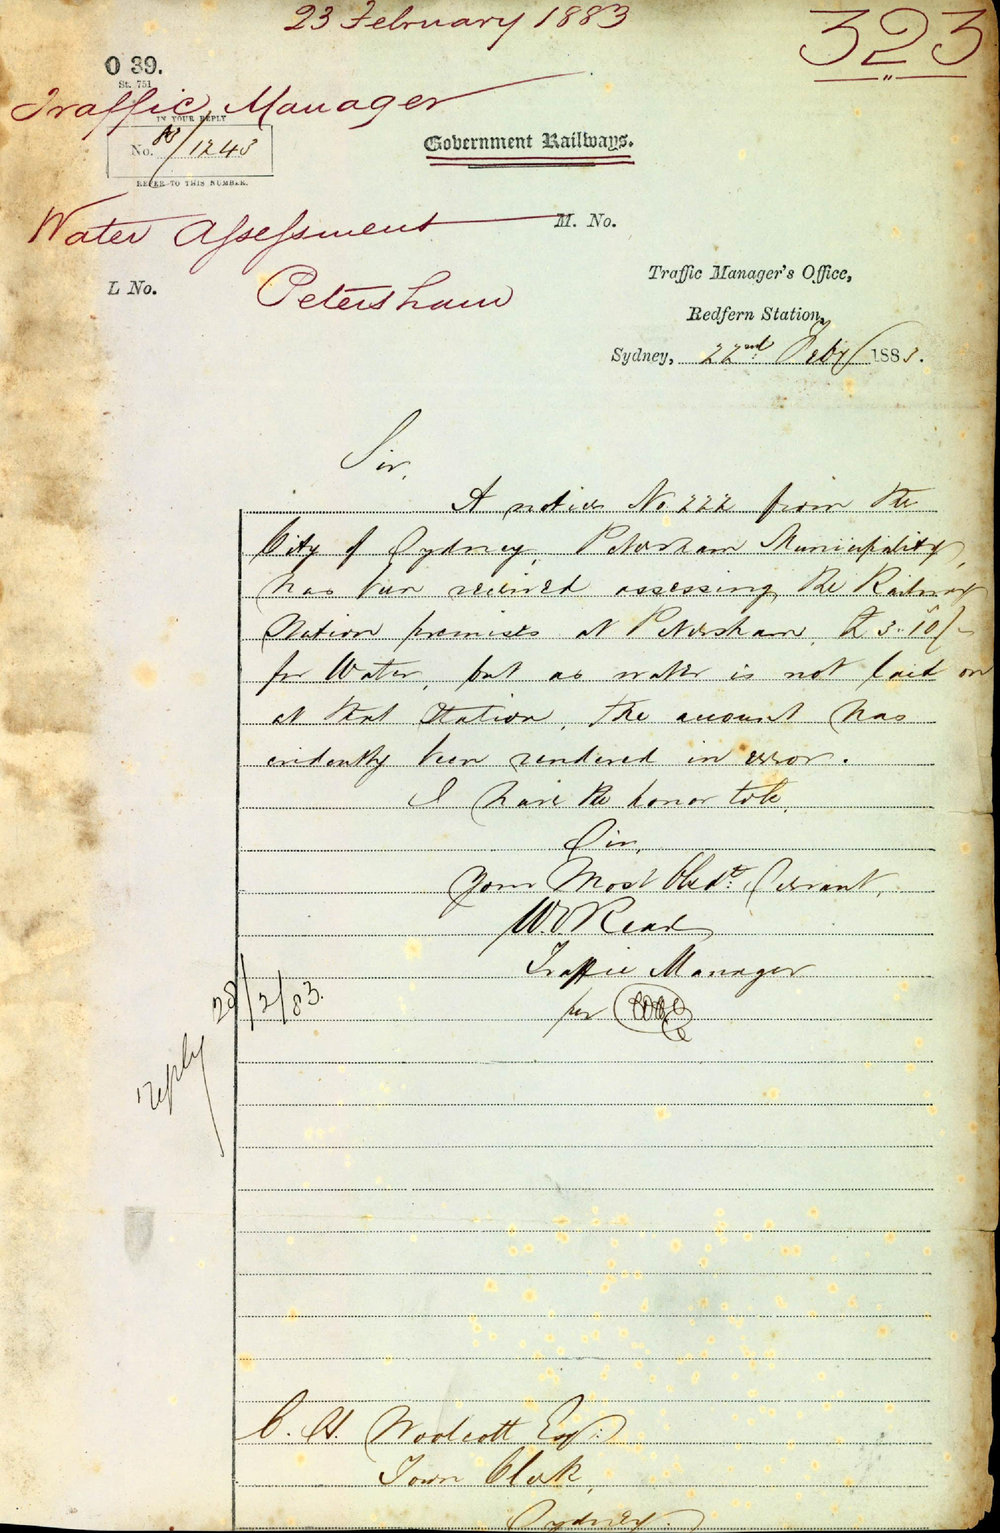 23 February 1883
323
O 39.
St. 751
Traffic Manager
IN YOUR REPLY
No. 83/1243
REFER TO THIS NUMBER.
Government Railways.
Water Assessment
M. No.
L No.
Petersham
Traffic Manager's Office,
Redfern Station,
Sydney, 22nd Feby 1883.
Sir,
A notice No 222 from the
City of Sydney, Petersham Municipality,
has been received assessing the Railway
Station premises at Petersham, £3.10/-
for Water, but as water is not laid on
at that Station, the account has
evidently been rendered in error.
I have the honor to be,
Sir,
Your Most Obedt: Servant,
W.V. Read
Traffic Manager
per
28/2/83.
reply
C. H. Woolcott Esq:
Town Clerk,
Sydney.